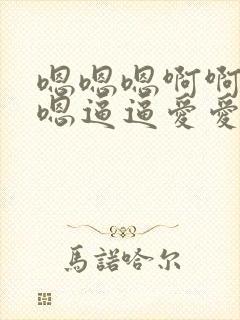 嗯嗯嗯啊啊
嗯逼逼爱爱
馬諾哈尔